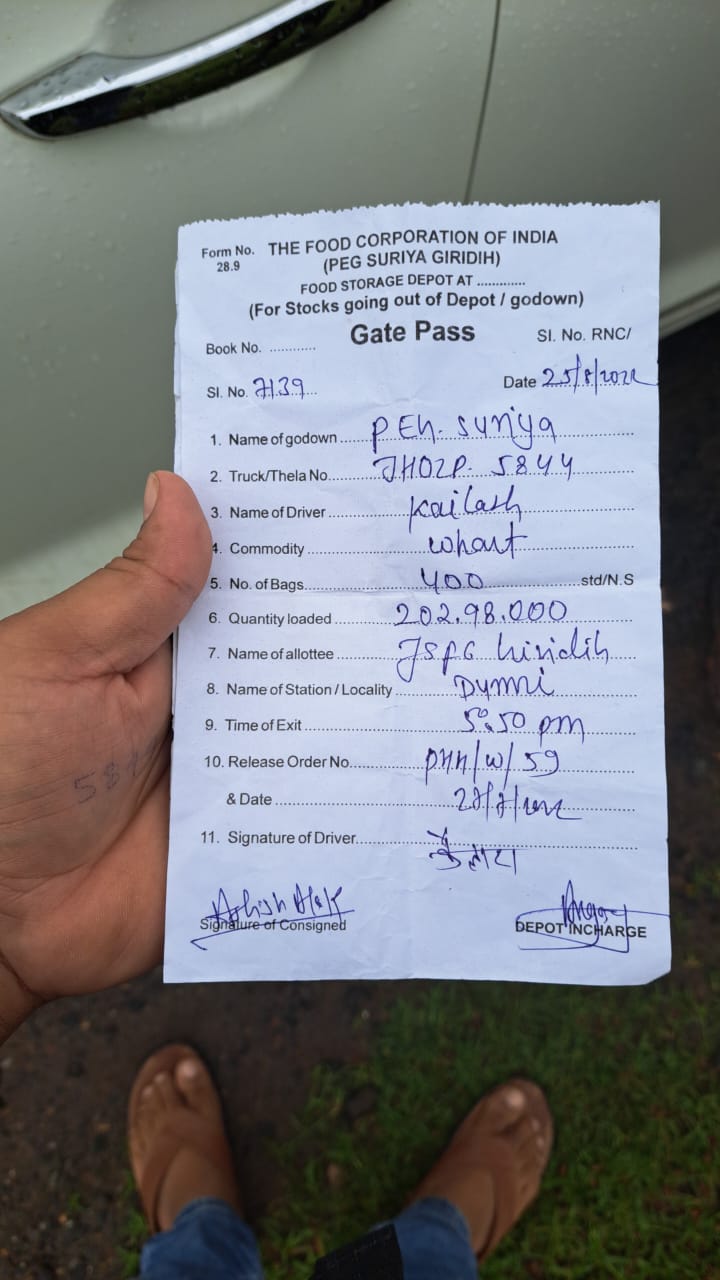 Form No. THE FOOD CORPORATION OF INDIA
28.9 (PEG SURIYA GIRIDIH)
FOOD STORAGE DEPOT AT .............
(For Stocks going out of Depot / godown)
Book No. ............ Gate Pass SI. No. RNC/
SI. No. 7139 Date 25/8/2022
1. Name of godown PEG. Suriya
2. Truck/Thela No. JH02P. 5844
3. Name of Driver Kailash
4. Commodity
5. No. of Bags 400 std/N.S
6. Quantity loaded 202.98.000
7. Name of allottee JSFC Giridih
8. Name of Station / Locality Dumri
9. Time of Exit 5:50 pm
10. Release Order No. PHH/W/59
& Date
11. Signature of Driver
Signature of Consigned DEPOT INCHARGE